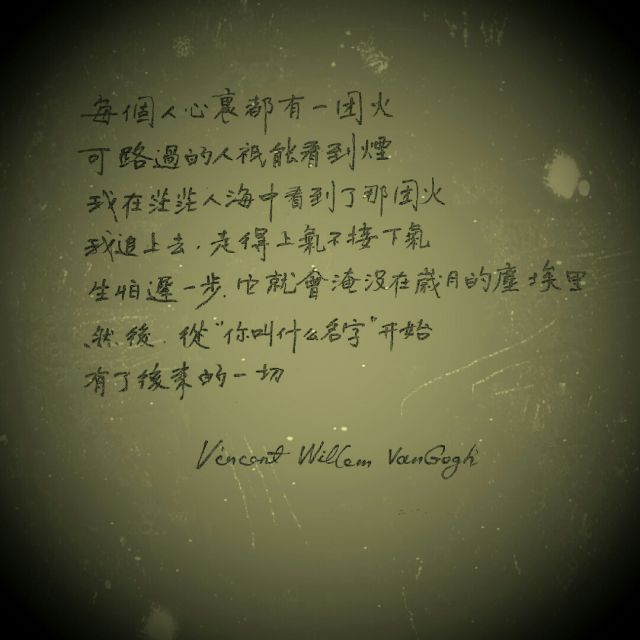 每個人心裏都有一团火
可路過的人衹能看到煙
我在茫茫人海中看到了那团火
我追上去，走得上氣不接下氣
生怕遲一步，它就會淹没在歲月的塵埃里
然後，從“你叫什么名字”开始
有了後来的一切
Vincent Willem VanGogh